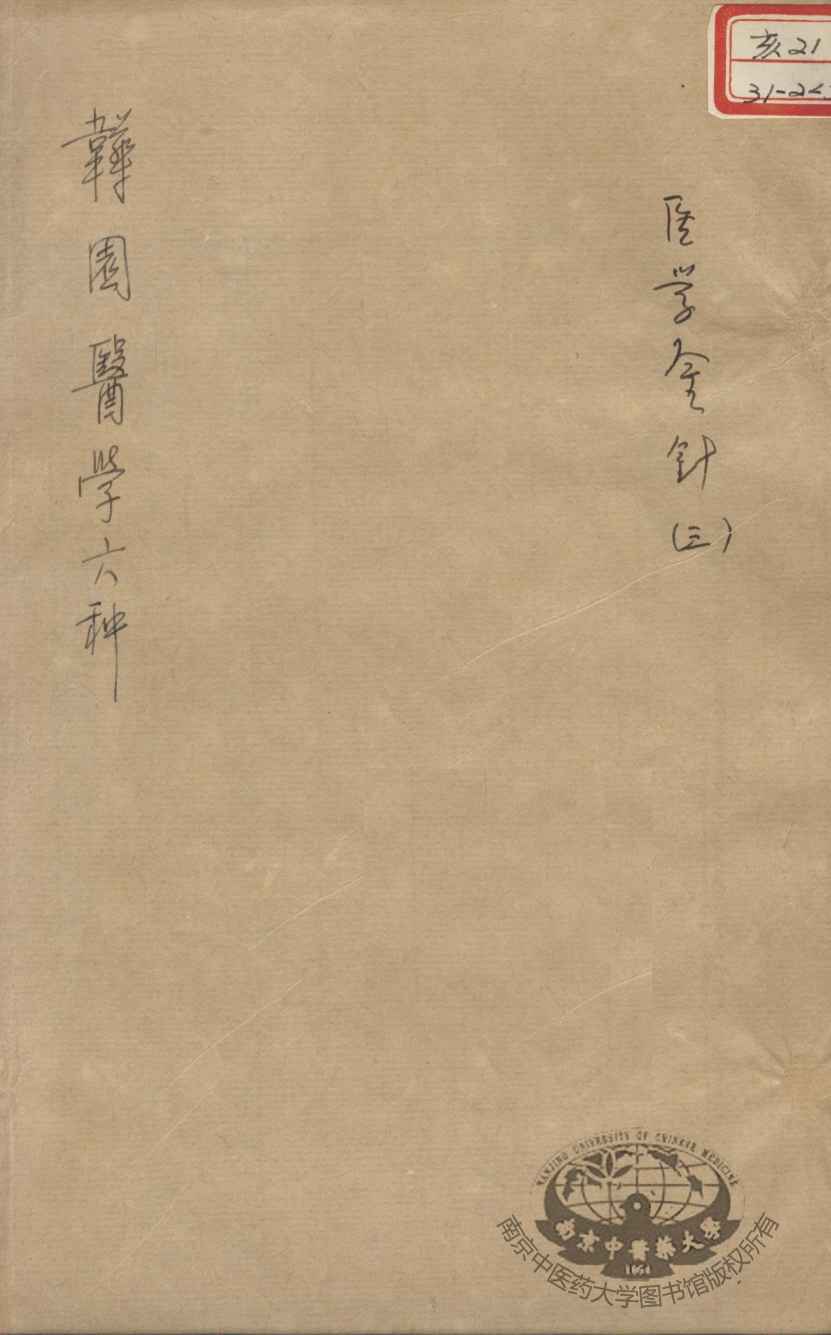 亥21
31-2
医学金针
(三)
韡園醫學六种
NANJING UNIVERSITY OF CHINESE MEDICINE
南京中醫藥大學
1954
南京中医药大学图书馆版权所有